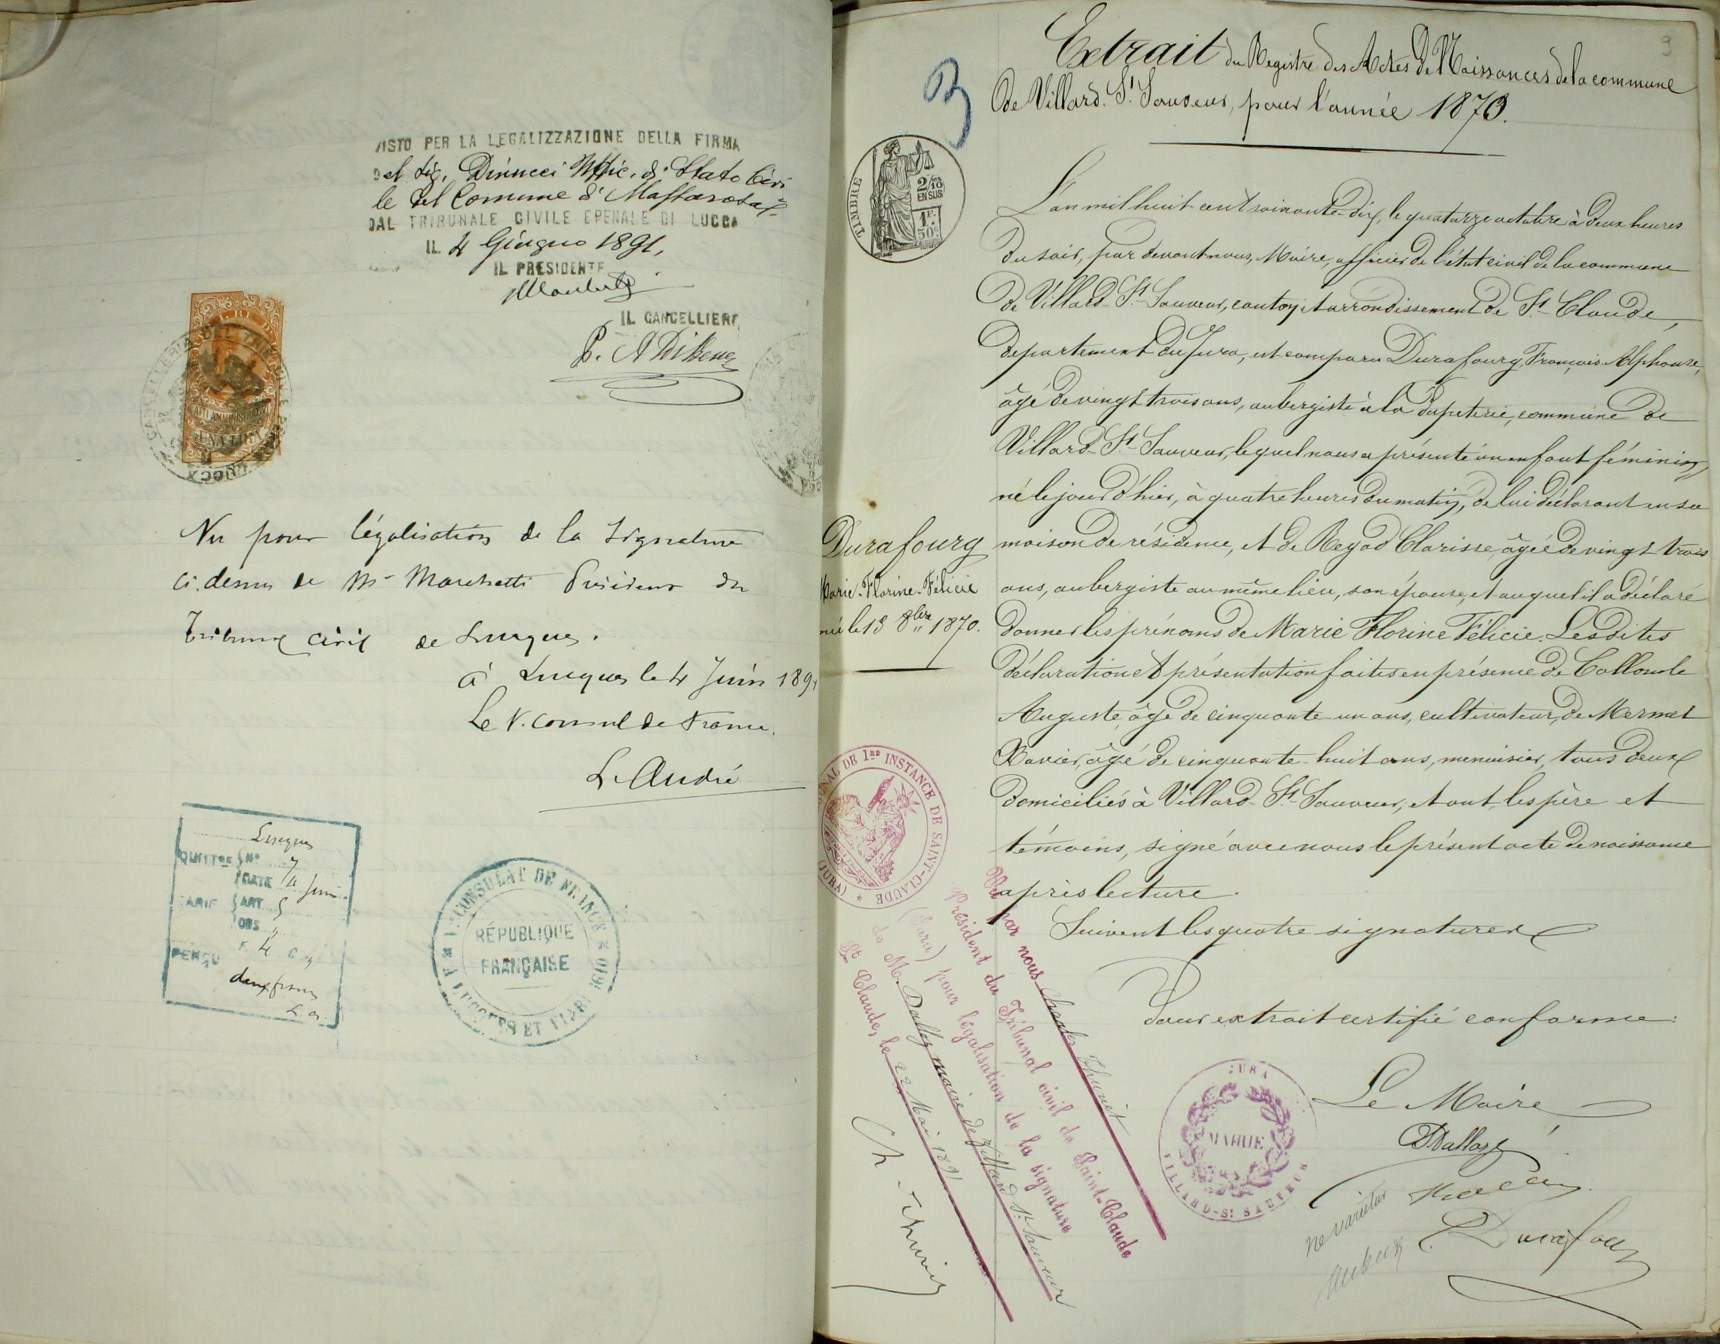 VISTO PER LA LEGALIZZAZIONE DELLA FIRMA
del Sig. Dinucci Uffic. di Stato Civi
le del Comune di Massarosa
DAL TRIBUNALE CIVILE E PENALE DI LUCCA
IL 4 Giugno 1891,
IL PRESIDENTE
IL CANCELLIERE
UNA LIRA
Vu pour légalisation de la signature
ci-dessus de Mr Marchetti Président du
Tribunal civil de Lucques.
à Lucques le 4 Juin 1891
Le V. consul de France.
L. André
Lucques
QUITCE No 7
DATE 4 Juin
TARIF ART. 5
OBS. "
PERÇU F. 4 C.
deux francs
Vce CONSULAT DE FRANCE
RÉPUBLIQUE
FRANÇAISE
9
B
Extrait du Registre des Actes de Naissances de la commune
de Villard-St Sauveur, pour l'année 1870.
TIMBRE
2/10
EN SUS
1F.
50C
L'an mil huit cent soixante-dix, le quatorze octobre à deux heures
du soir, par devant nous, Maire, officier de l'état civil de la commune
de Villard-St Sauveur, canton et arrondissement de St-Claude,
département du Jura, est comparu Durafourg, François Alphonse,
âgé de vingt trois ans, aubergiste à la papeterie, commune de
Villard-St-Sauveur, lequel nous a présenté un enfant féminin,
né le jour d'hier, à quatre heures du matin, de lui déclarant en sa
maison de résidence, et de Regad Clarisse, âgée de vingt trois
ans, aubergiste au même lieu, son épouse, et auquel il a déclaré
donner les prénoms de Marie Florine Félicie. Lesdites
déclaration et présentation faites en présence de Colloude
Auguste, âgé de cinquante un ans, cultivateur, de Mermet
Xavier, âgé de cinquante-huit ans, menuisier, tous deux
domiciliés à Villard-St-Sauveur, et ont, les père et
témoins, signé avec nous le présent acte de naissance
après lecture.
Suivent les quatre signatures
Pour extrait certifié conforme:
Le Maire
Durafourg
Marie-Florine-Félicie
née le 13 8bre 1870.
TRIBUNAL DE 1RE INSTANCE DE SAINT-CLAUDE
(JURA)
Vu par nous Charles Thuriet
Président du Tribunal civil de Saint-Claude
(Jura) pour légalisation de la signature
de M. Dalloz maire de Villard St Sauveur
St Claude, le 22 Mai 1891
Ch. Thuriet
JURA
MAIRIE
VILLARD-St SAUVEUR
Dalloz
ne varietur